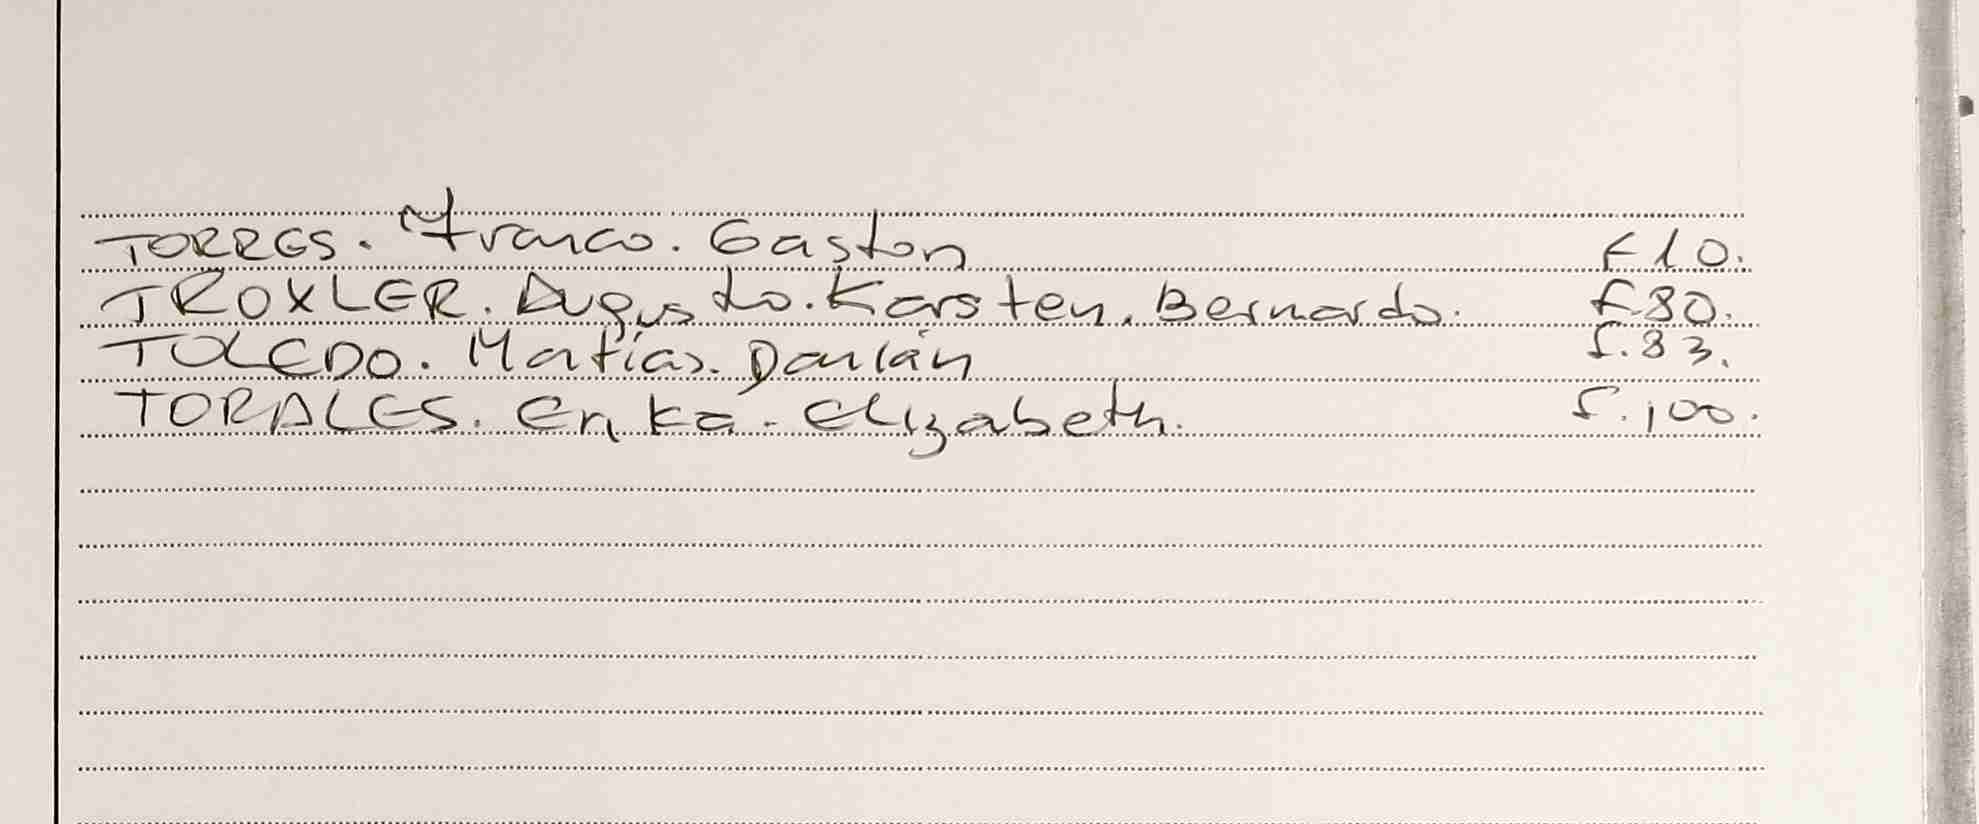 TORRES. Franco. Gaston F10.
TROXLER. Augusto. Karsten. Bernardo. F80.
TOLEDO. Matías. Damián F.83.
TORALES. Erika. Elizabeth. F.100.